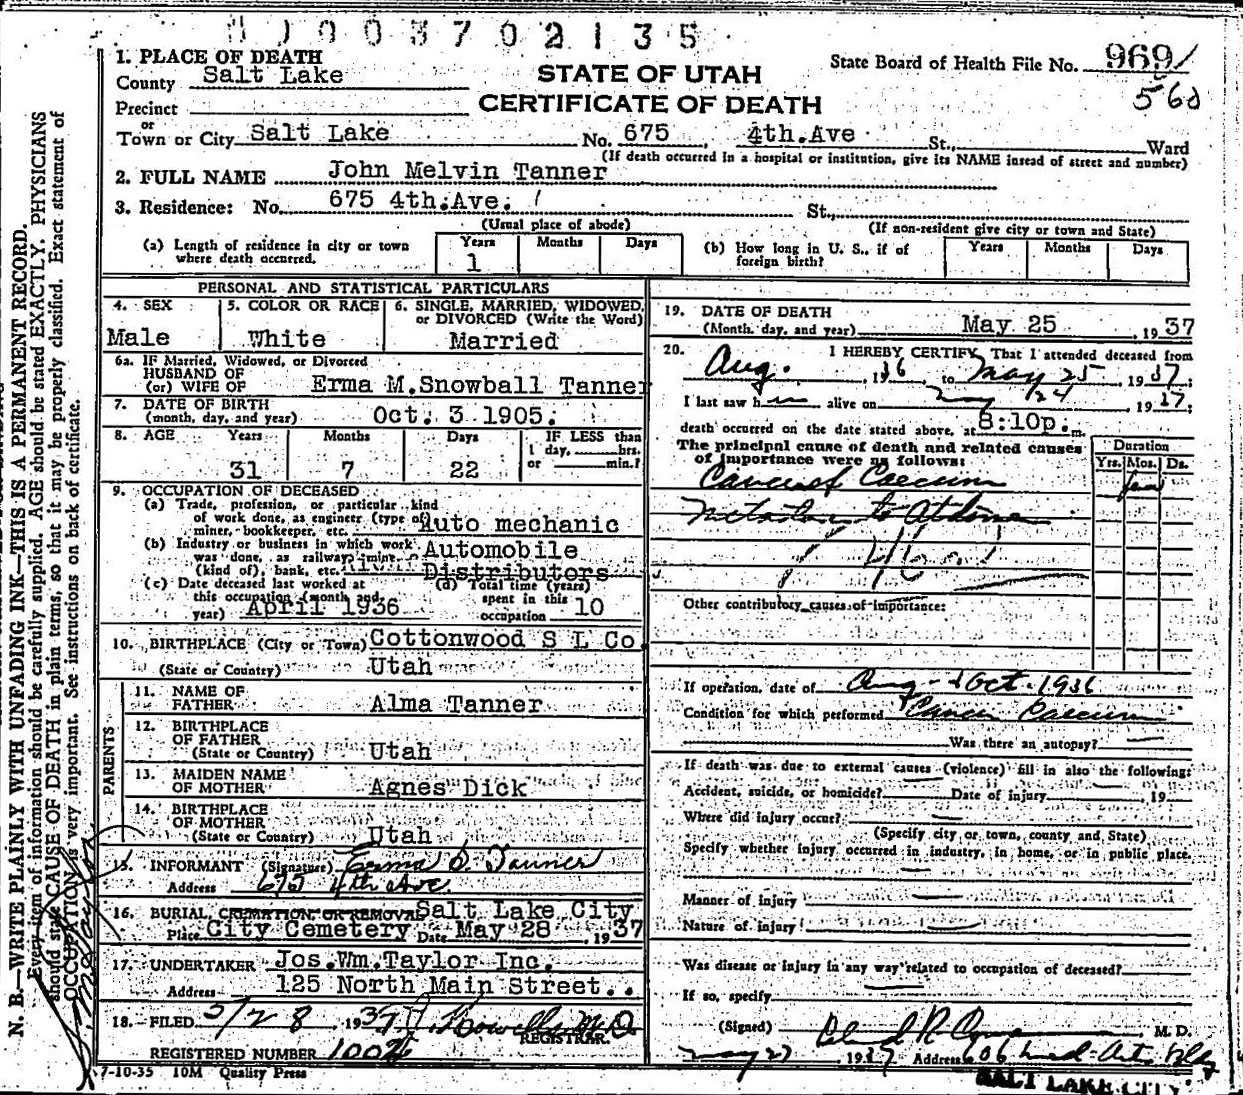 003702135
1. PLACE OF DEATH
County Salt Lake
Precinct
or
Town or City Salt Lake No. 675, 4th.Ave St., Ward
(If death occurred in a hospital or institution, give its NAME instead of street and number)
STATE OF UTAH
CERTIFICATE OF DEATH
State Board of Health File No. 969/
560
2. FULL NAME John Melvin Tanner
3. Residence: No. 675 4th.Ave. St.,
(Usual place of abode) (If non-resident give city or town and State)
(a) Length of residence in city or town where death occurred.
Years Months Days
1
(b) How long in U. S., if of foreign birth?
Years Months Days
PERSONAL AND STATISTICAL PARTICULARS
4. SEX
Male
5. COLOR OR RACE
White
6. SINGLE, MARRIED, WIDOWED, or DIVORCED (Write the Word)
Married
6a. IF Married, Widowed, or Divorced
HUSBAND OF
(or) WIFE OF Erma M.Snowball Tanner
7. DATE OF BIRTH
(month, day, and year) Oct. 3 1905.
8. AGE Years Months Days IF LESS than
1 day, hrs.
or min.?
31 7 22
9. OCCUPATION OF DECEASED
(a) Trade, profession, or particular kind
of work done, as engineer (type of)
miner, bookkeeper, etc. Auto mechanic
(b) Industry or business in which work
was done, as railway, mine
(kind of), bank, etc. Automobile
Distributors
(c) Date deceased last worked at
this occupation (month and
year) April 1936
(d) Total time (years)
spent in this
occupation 10
10. BIRTHPLACE (City or Town) Cottonwood S L Co.
(State or Country) Utah
PARENTS
11. NAME OF
FATHER Alma Tanner
12. BIRTHPLACE
OF FATHER
(State or Country) Utah
13. MAIDEN NAME
OF MOTHER Agnes Dick
14. BIRTHPLACE
OF MOTHER
(State or Country) Utah
15. INFORMANT (Signature) Erma S. Tanner
Address 675 4th Ave.
16. BURIAL, CREMATION, OR REMOVAL Salt Lake City
Place City Cemetery Date May 28, 1937
17. UNDERTAKER Jos.Wm.Taylor Inc.
Address 125 North Main Street..
18. FILED 5/28 1937 M.D.
REGISTRAR.
REGISTERED NUMBER
7-10-35 10M Quality Press
19. DATE OF DEATH
(Month, day, and year) May 25, 1937
20. I HEREBY CERTIFY, That I attended deceased from
Aug., 1936 to May 25 1937;
I last saw him alive on May 24 1937;
death occurred on the date stated above, at 8:10p. m.
The principal cause of death and related causes
of importance were as follows:
Duration
Yrs. Mos. Ds.
Cancer of Caecum
Other contributory causes of importance:
If operation, date of Aug - & Oct. 1936
Condition for which performed Cancer Caecum
Was there an autopsy?
If death was due to external causes (violence) fill in also the following:
Accident, suicide, or homicide? Date of injury, 19
Where did injury occur?
(Specify city or town, county and State)
Specify whether injury occurred in industry, in home, or in public place.
Manner of injury
Nature of injury
Was disease or injury in any way related to occupation of deceased?
If so, specify
(Signed) M. D.
May 27 1937 Address 606 Med. Arts Bldg
SALT LAKE CITY
N. B.—WRITE PLAINLY WITH UNFADING INK—THIS IS A PERMANENT RECORD.
Every item of information should be carefully supplied. AGE should be stated EXACTLY. PHYSICIANS
should state CAUSE OF DEATH in plain terms, so that it may be properly classified. Exact statement of
OCCUPATION is very important. See instructions on back of certificate.